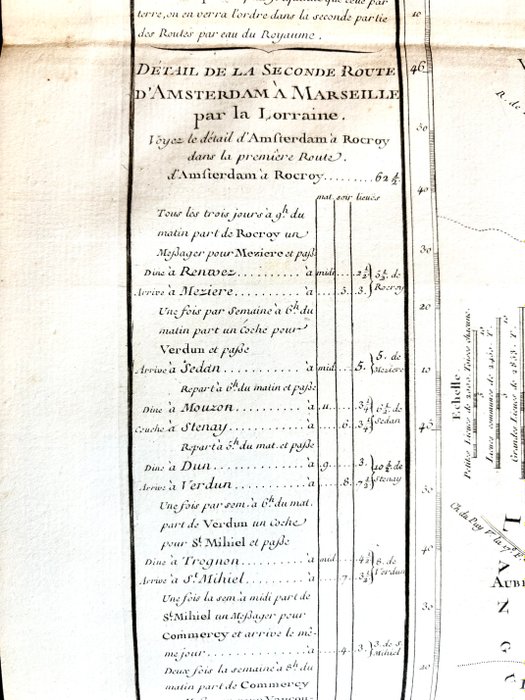 terre, on en verra l'ordre dans la seconde partie
des Routes par eau du Royaume.
DÉTAIL DE LA SECONDE ROUTE
D'AMSTERDAM À MARSEILLE
par la Lorraine.
Voyez le détail d'Amsterdam à Rocroy
dans la première Route.
d'Amsterdam à Rocroy........ 62 ½
mat. soir lieues
Tous les trois jours à 9h du
matin part de Rocroy un
Messager pour Meziere et passe
Dine à Renwez........... à midi... 2½ } 5½ de
Arrive à Meziere........... à ... 5... 3. } Rocroy
Une fois par Semaine à 6h du
matin part un Coche pour
Verdun et passe
Arrive à Sedan........... à mid... 5. } 5. de Meziere
Repart à 6h du matin et passe
Dine à Mouzon........... à 11... 3¼ } 6½ de
Couche à Stenay........... à ... 6. 3¼ } Sedan
Repart à 5h du mat. et passe
Dine à Dun........... à 9... 3. } 10½ de
Arrive à Verdun........... à ... 8. 7½ } Stenay
Une fois par sem. à 6h du mat.
part de Verdun un Coche
pour St Mihiel et passe
Dine à Trognon........... à mid... 4½ } 8. de
Arrive à St Mihiel........... à ... 7. 3½ } Verdun
Une fois la sem. à midi part de
St Mihiel un Messager pour
Commercy et arrive le mê-
me jour........... à ... 4. 3. } 3. de S. Mihiel
Deux fois la semaine à 8h du
matin part de Commercy
10
46
50
40
30
20
10
45
50
40
30
20
V
R. de
Echelle
Petites Lieues de 2000 Toises chacune.
Lieues communes de 2400 T.
Grandes Lieues de 2853 T.
Ch. du Puy F. la
L
A
N
G
AUB